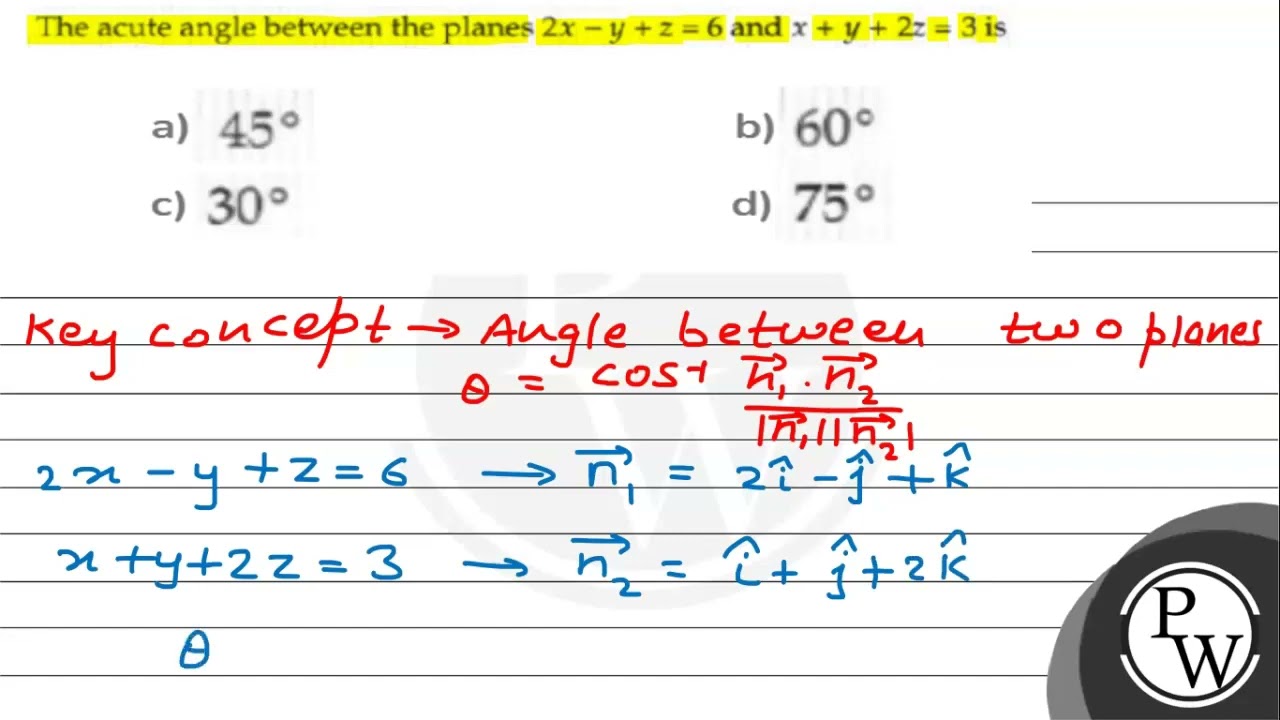 The acute angle between the planes 2x − y + z = 6 and x + y + 2z = 3 is
a) 45° b) 60°
c) 30° d) 75°
Key concept → Angle between two planes
θ = cos-1 n⃗₁ . n⃗₂
|n⃗₁| |n⃗₂|
2x − y + z = 6 → n⃗₁ = 2î − ĵ + k̂
x + y + 2z = 3 → n⃗₂ = î + ĵ + 2k̂
θ
P
W